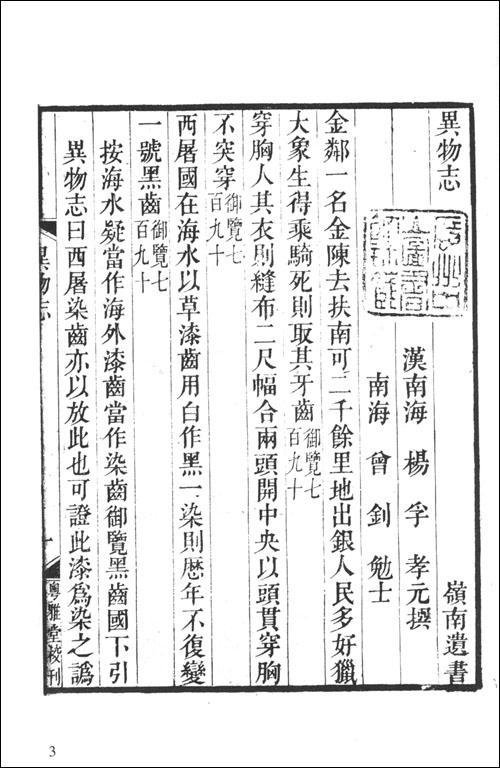 異物志 嶺南遺書
漢南海 楊孚孝元撰
南海 曾釗勉士
金鄰一名金陳去扶南可二千餘里地出銀人民多好獵
大象生得乘騎死則取其牙齒御覽七百九十
穿胸人其衣則縫布二尺幅合兩頭開中央以頭貫穿胸
不突穿御覽七百九十
西屠國在海水以草漆齒用白作黑一染則歷年不復變
一號黑齒御覽七百九十
按海水疑當作海外漆齒當作染齒御覽黑齒國下引
異物志曰西屠染齒亦以放此也可證此漆爲染之譌
異物志
一
粤雅堂校刊
3